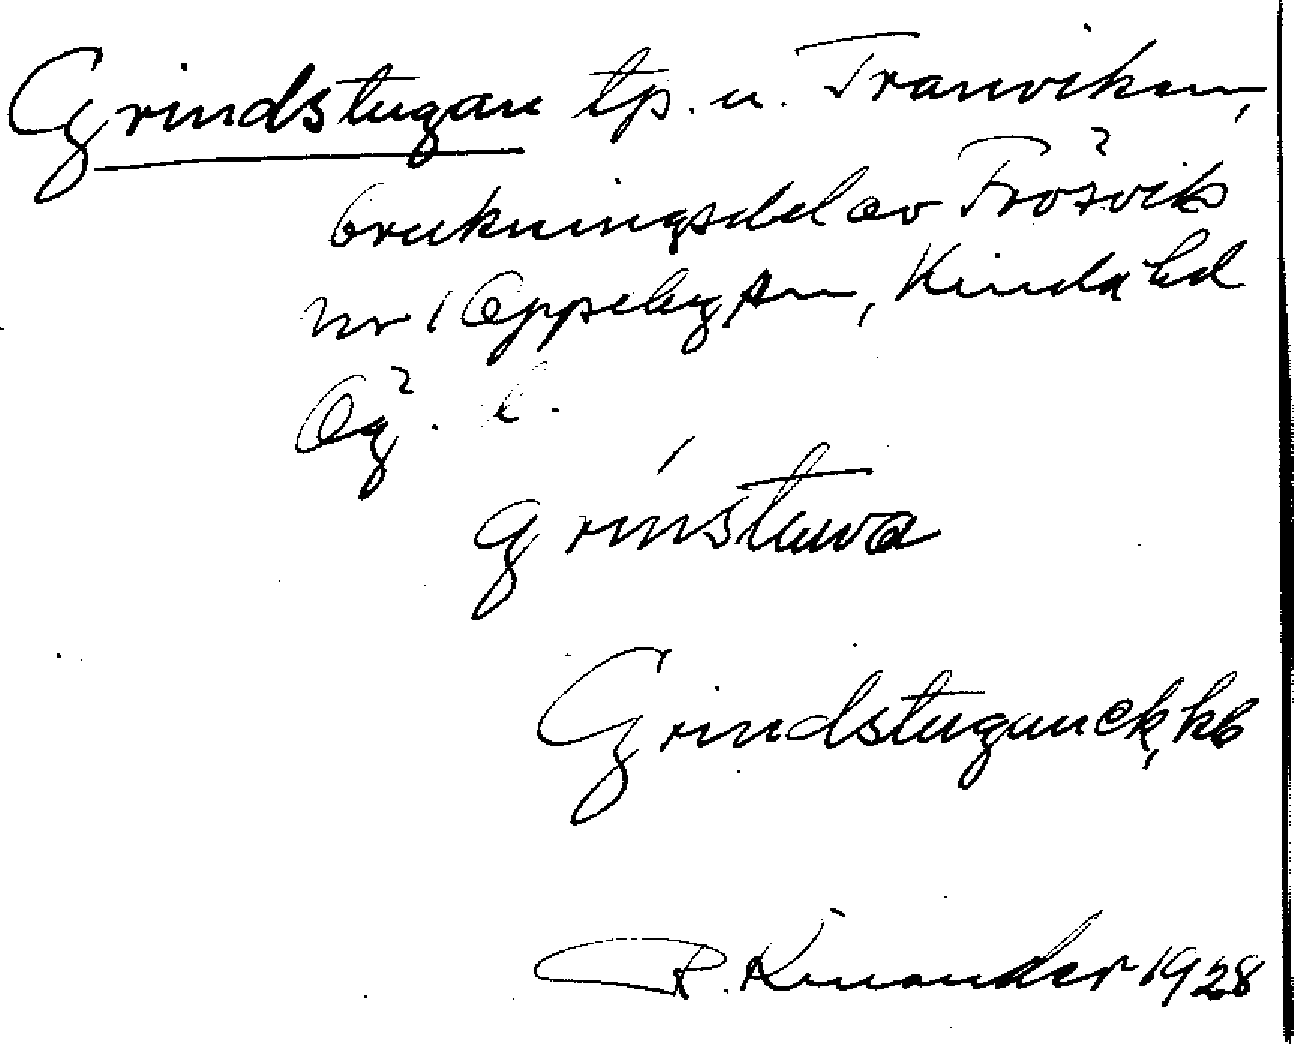 Grindstugan tp. u. Tranviken,
brukningsdel av Frösvik
nr 1 Oppeby sn, Kinda hd
Ög. l.
grinstuwa
Grindstugan ek, kb
R. Kinander 1928